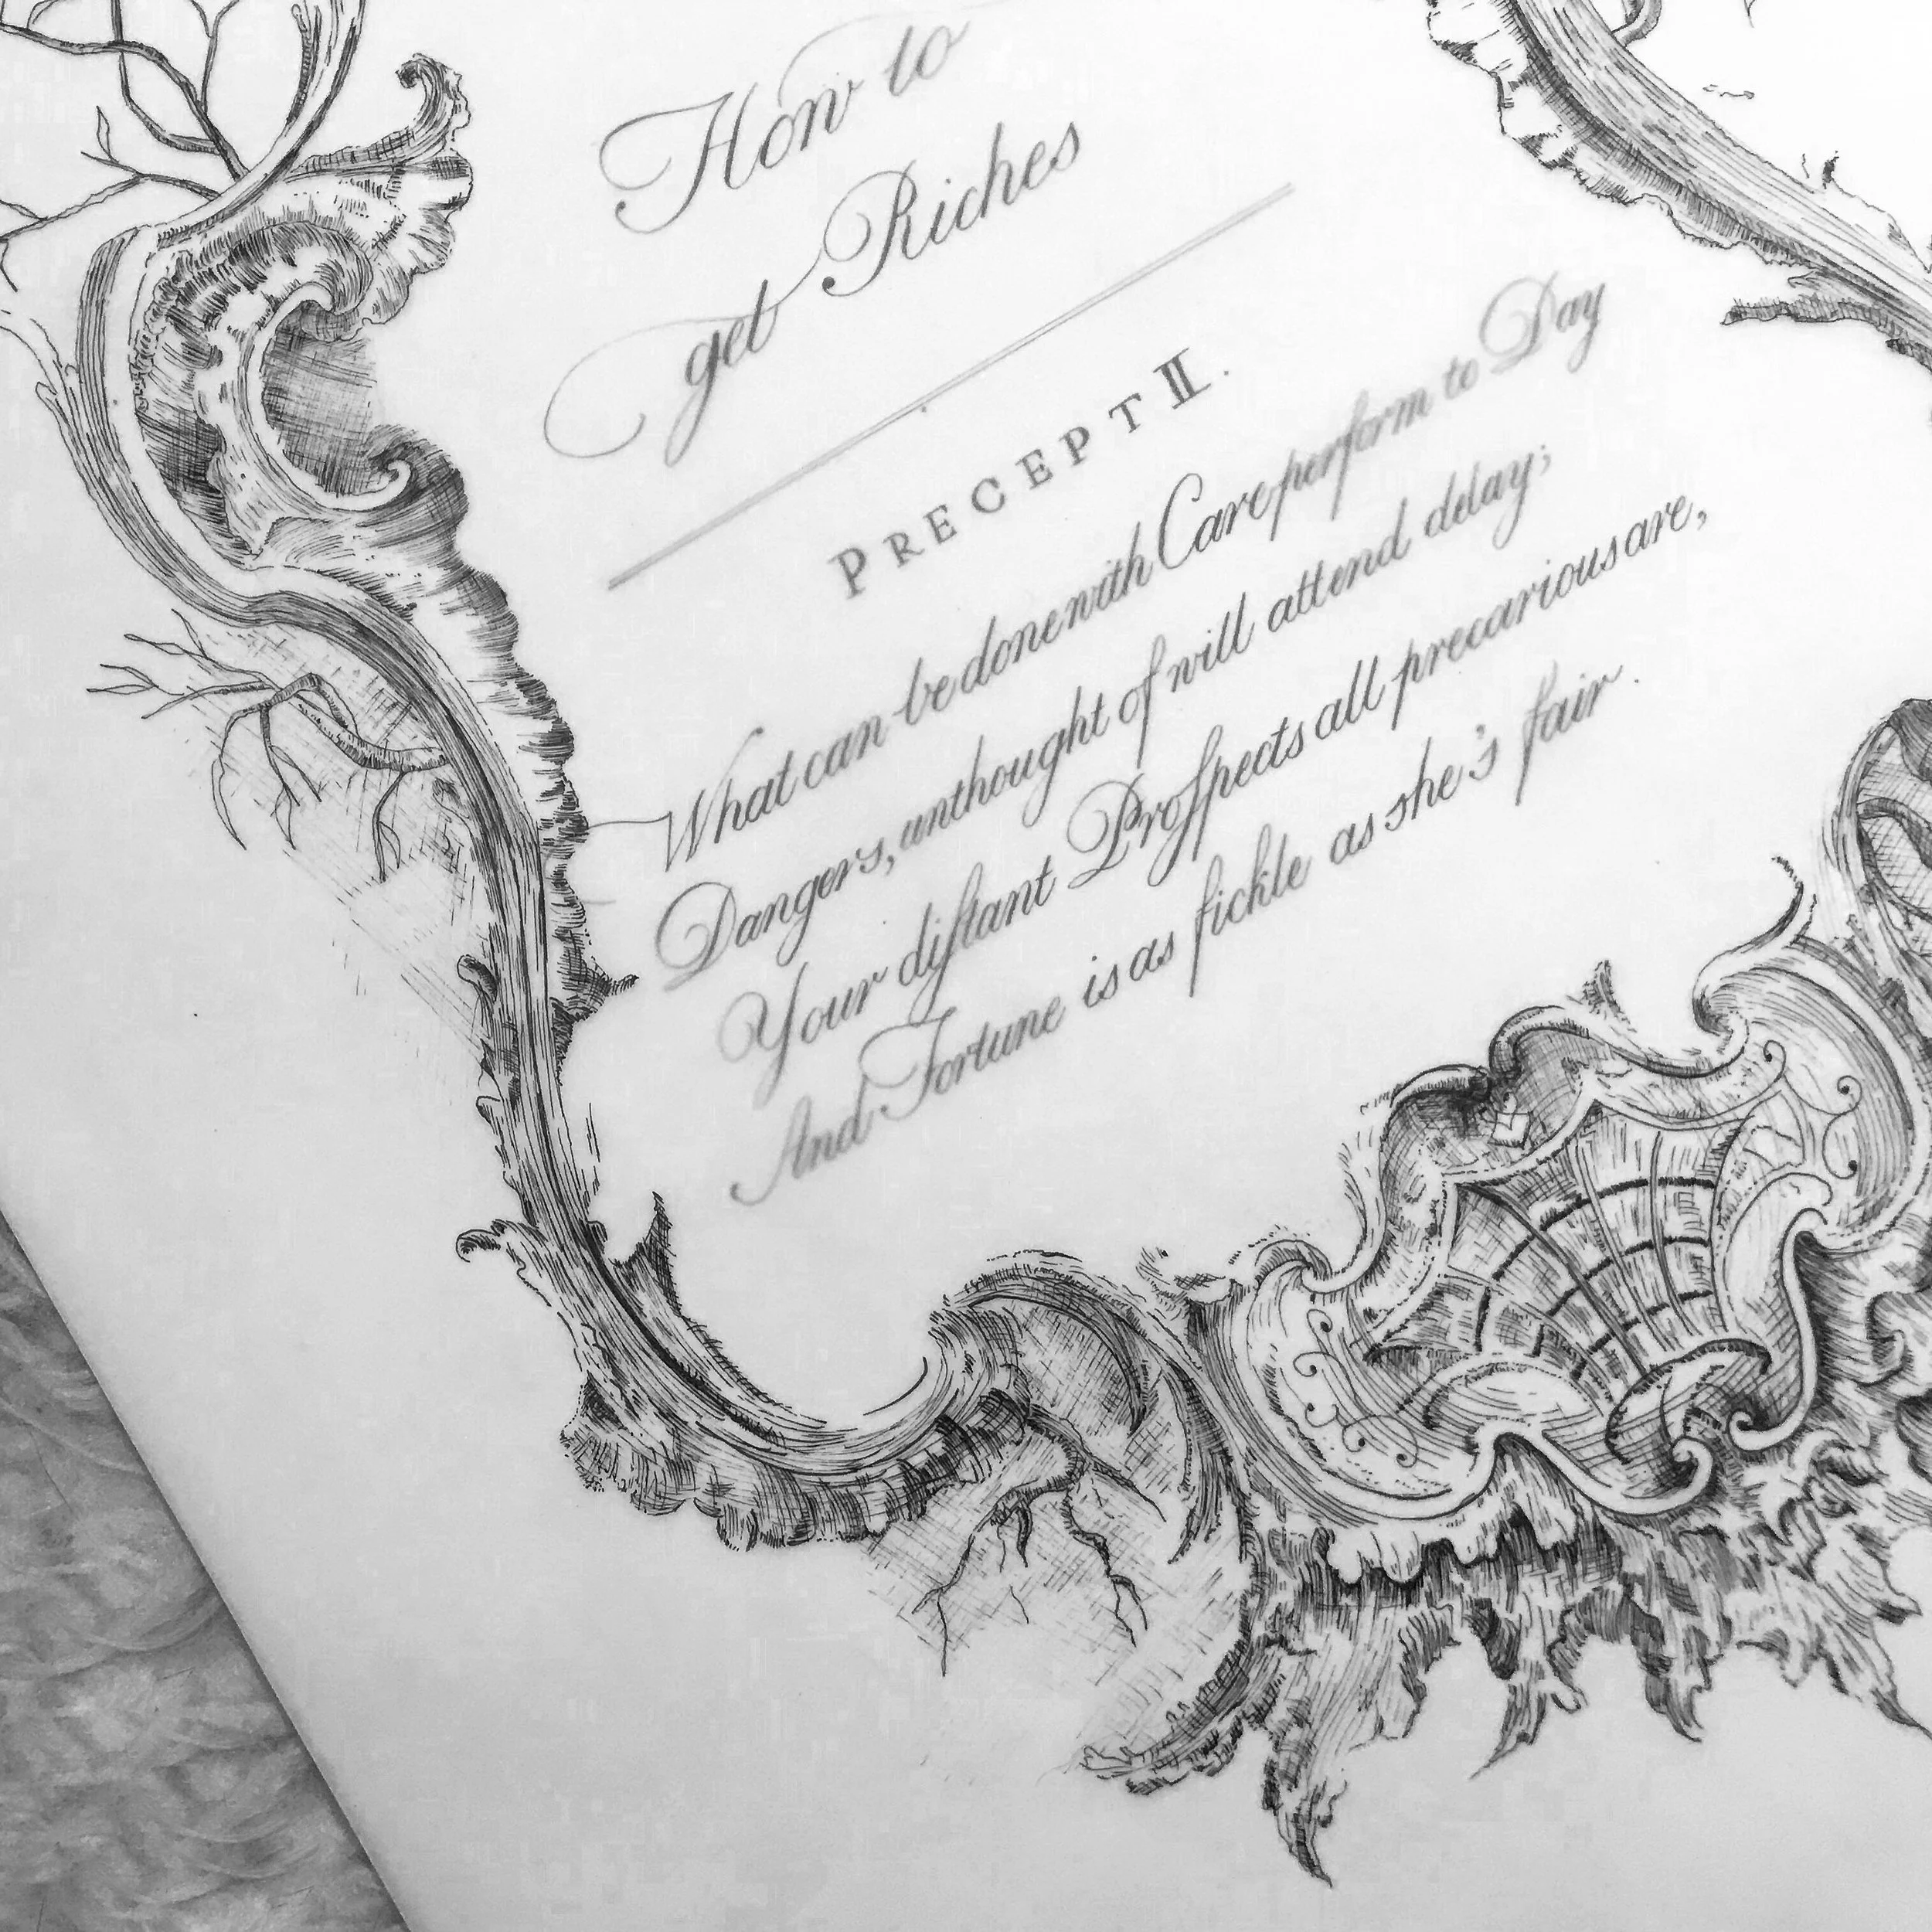 How to
get Riches
PRECEPT II.
What can be done with Care perform to Day
Dangers, unthought of will attend delay;
Your diſtant Proſpects all precarious are,
And Fortune is as fickle as she's fair.